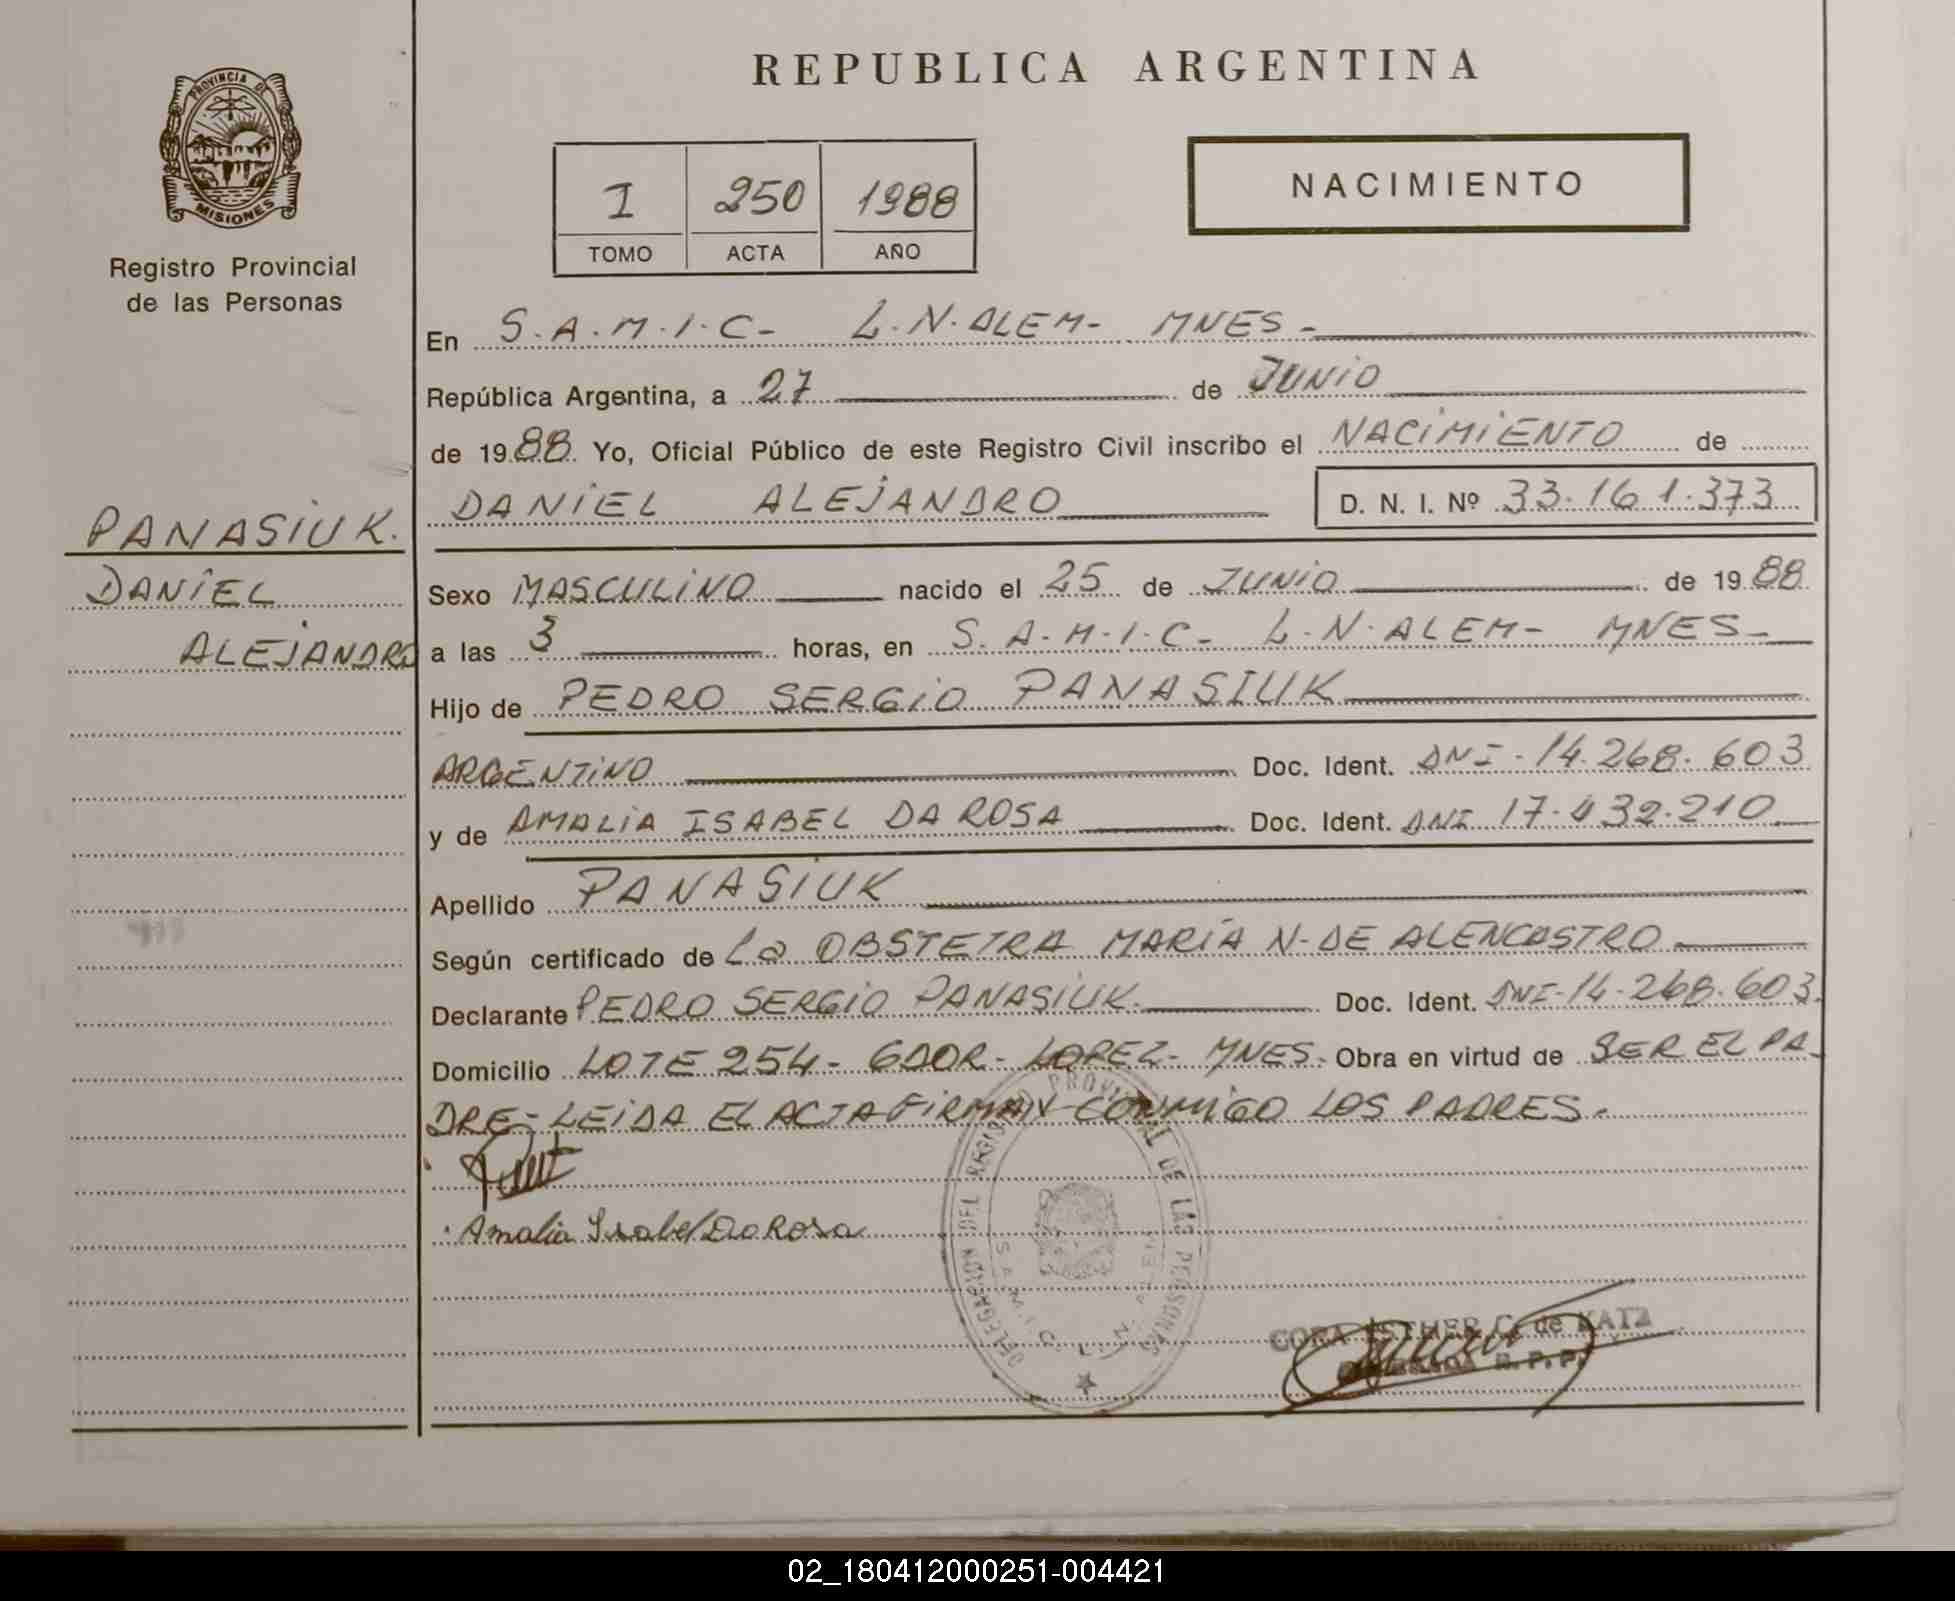 REPUBLICA ARGENTINA
PROVINCIA DE
MISIONES
Registro Provincial
de las Personas
I 250 1988
TOMO ACTA AÑO
NACIMIENTO
En S.A.M.I.C- L.N.ALEM- MNES-
República Argentina, a 27 de JUNIO
de 1988 Yo, Oficial Público de este Registro Civil inscribo el NACIMIENTO de
DANIEL ALEJANDRO D. N. I. Nº 33.161.373
PANASIUK.
DANIEL
ALEJANDRO
Sexo MASCULINO nacido el 25 de JUNIO de 1988
a las 3 horas, en S.A.M.I.C- L.N.ALEM- MNES-
Hijo de PEDRO SERGIO PANASIUK
ARGENTINO Doc. Ident. DNI-14.268.603
y de AMALIA ISABEL DA ROSA Doc. Ident. DNI 17.432.210
Apellido PANASIUK
Según certificado de La OBSTETRA MARÍA N-DE ALENCASTRO
Declarante PEDRO SERGIO PANASIUK. Doc. Ident. DNI-14-268.603.
Domicilio LOTE 254- GDOR- LOPEZ- MNES- Obra en virtud de SER EL PA-
DRE- LEIDA EL ACTA FIRMAN CONMIGO LOS PADRES.
Amalia Isabel Da Rosa
DELEGACION DEL REGISTRO PROVINCIAL DE LAS PERSONAS
S.A.M.I.C. L.N. ALEM
CORA ESTHER C. de KATZ
R. P. P.
02_180412000251-004421